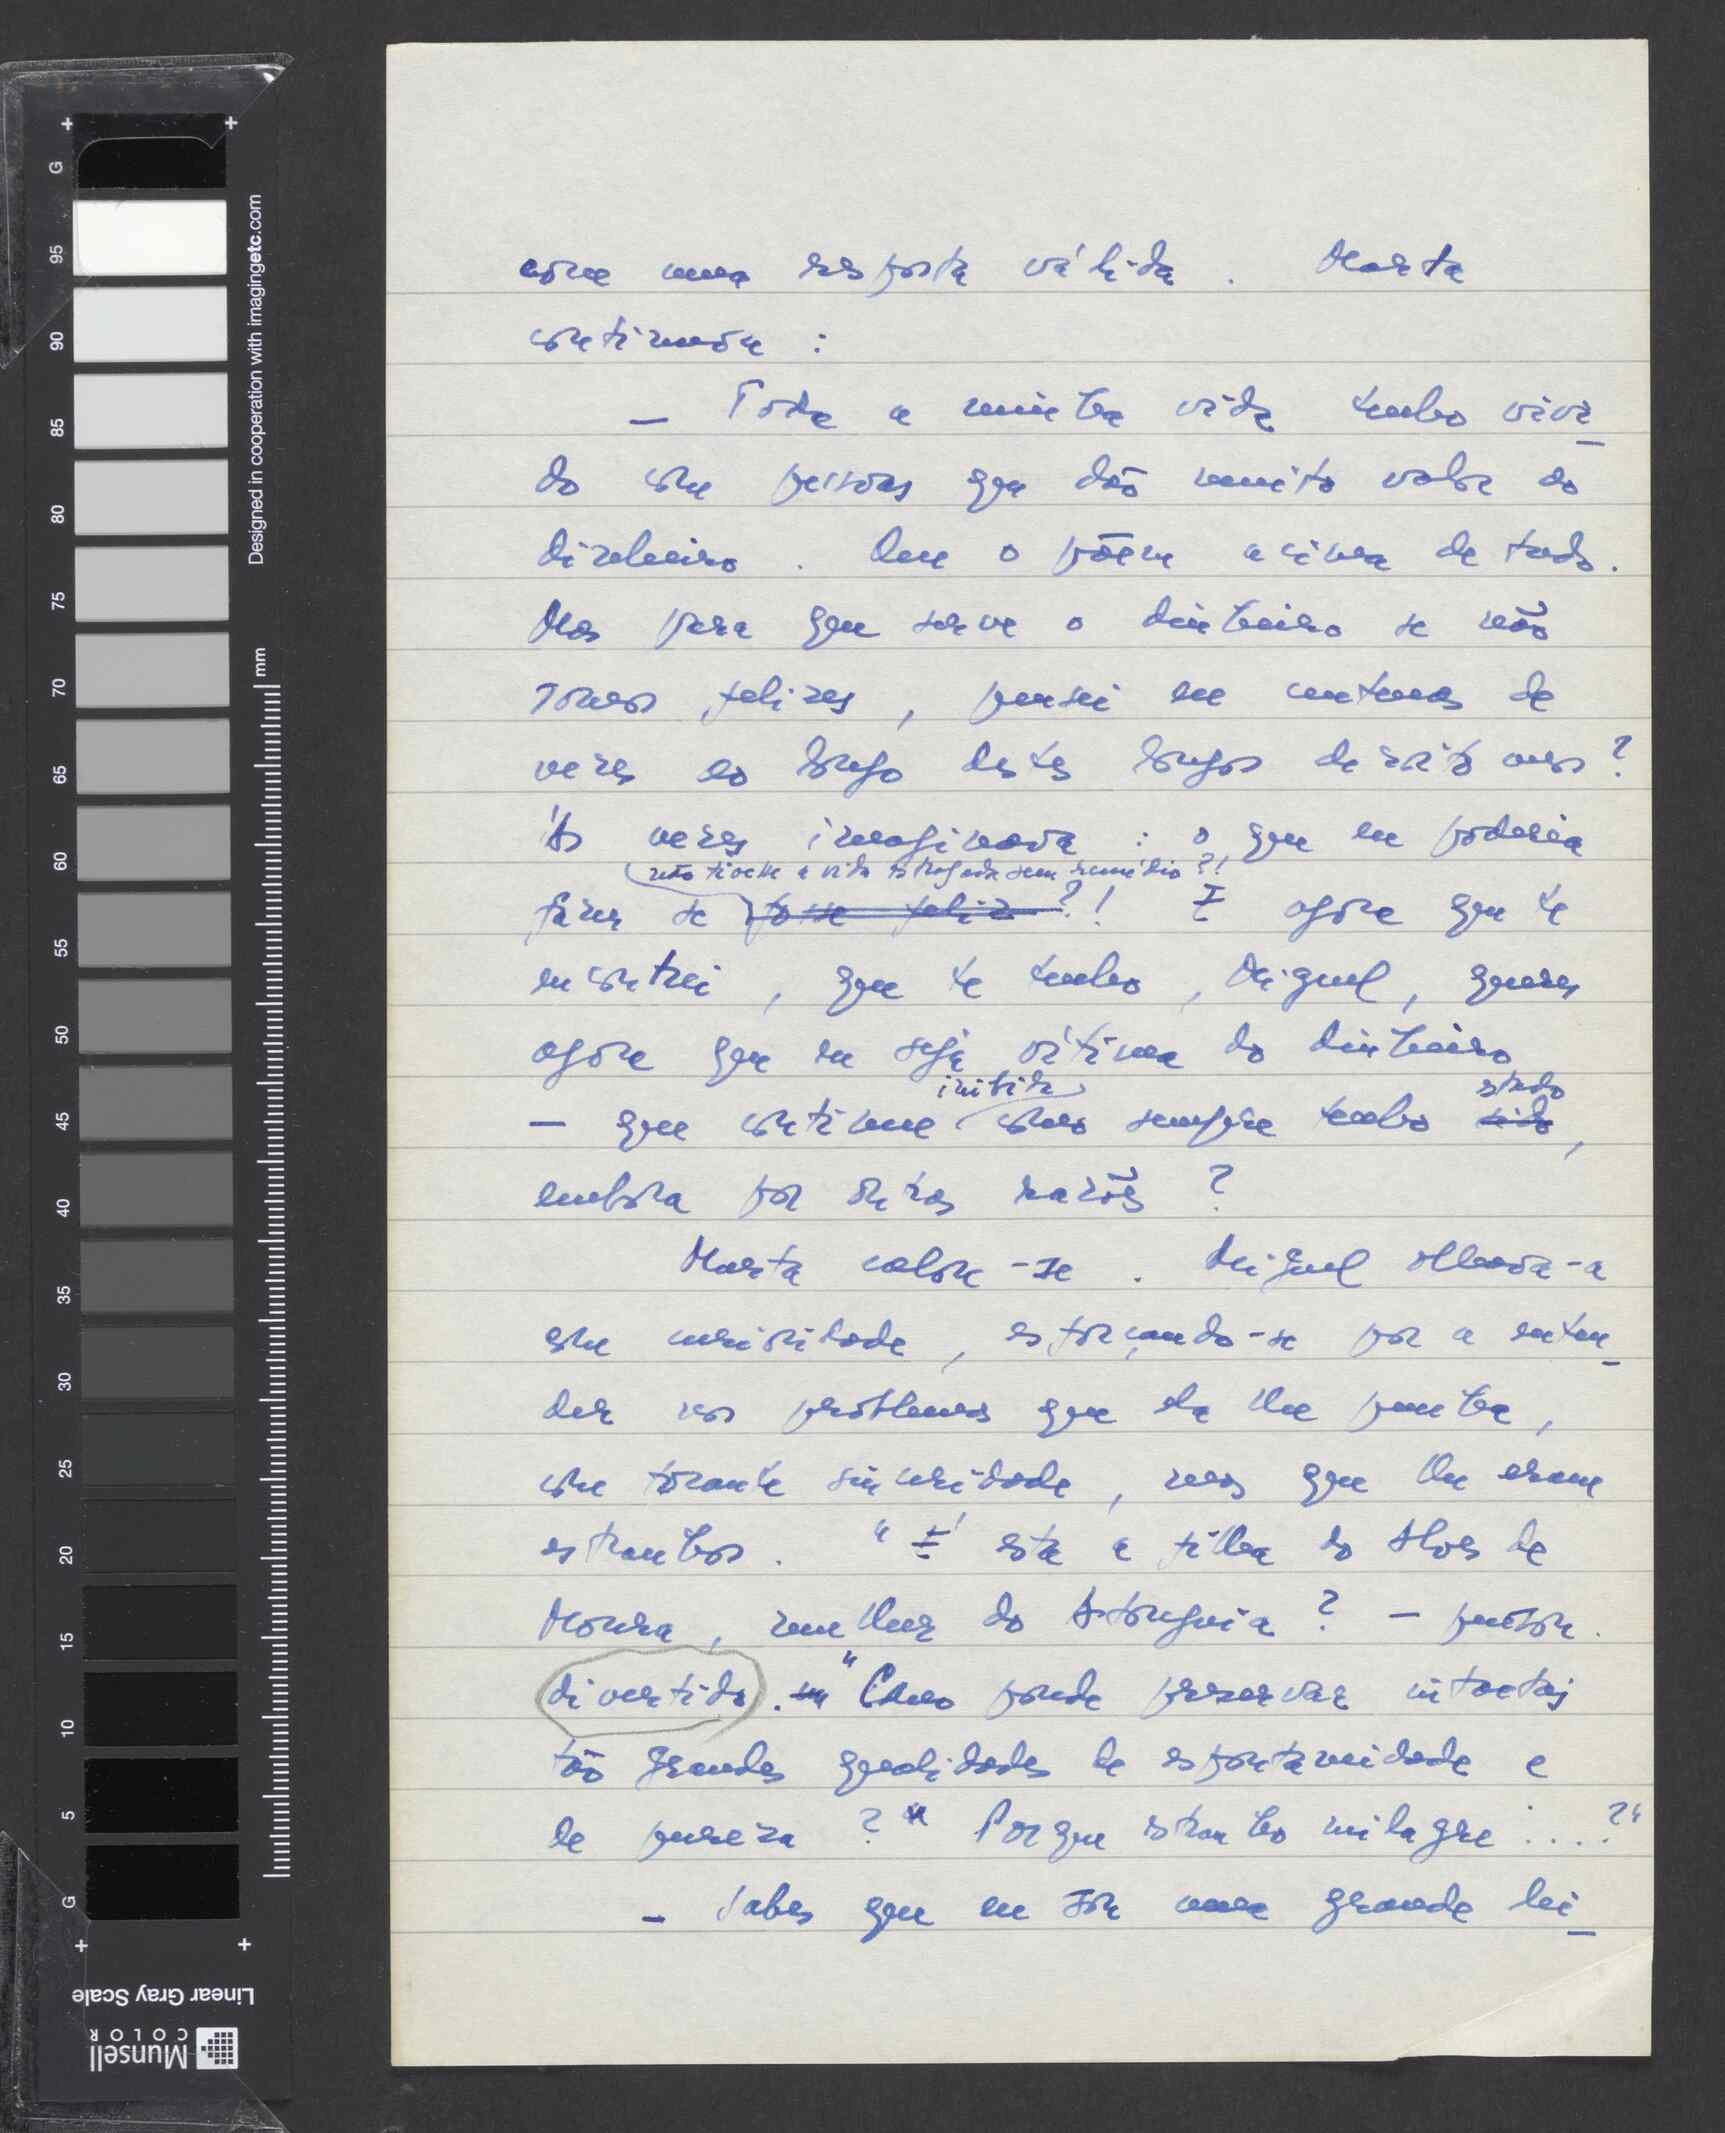 com uma resposta válida. Marta
continuou:
— Toda a minha vida tenho vivi-
do com pessoas que dão muito valor ao
dinheiro. Que o põem acima de tudo.
Mas para que serve o dinheiro se não
somos felizes, pensei eu centenas de
vezes ao longo destes longos dezoito anos?
Às vezes imaginava: o que eu poderia
não tivesse a vida estragada sem remédio?!
fazer se fosse feliz?! E agora que te
encontrei, que te tenho, Miguel, queres
agora que eu seja vítima do dinheiro
inibida estado
— que continue como sempre tenho sido,
embora por outras razões?
Marta calou-se. Miguel olhava-a
com curiosidade, esforçando-se por a enten-
der nos problemas que ela lhe punha,
com tocante sinceridade, mas que lhe eram
estranhos. "É esta a filha do Alves de
Moura, mulher do Astorguia? — pensou.
divertido. "Como pôude preservar intactas
tão grandes qualidades de espontaneidade e
de pureza? Porque estranho milagre....?"
— Sabes que eu sou uma grande lei-
Designed in cooperation with imagingetc.com
mm
G
95
90
85
80
75
70
65
60
55
50
45
40
35
30
25
20
15
10
5
G
Linear Gray Scale
Munsell
COLOR